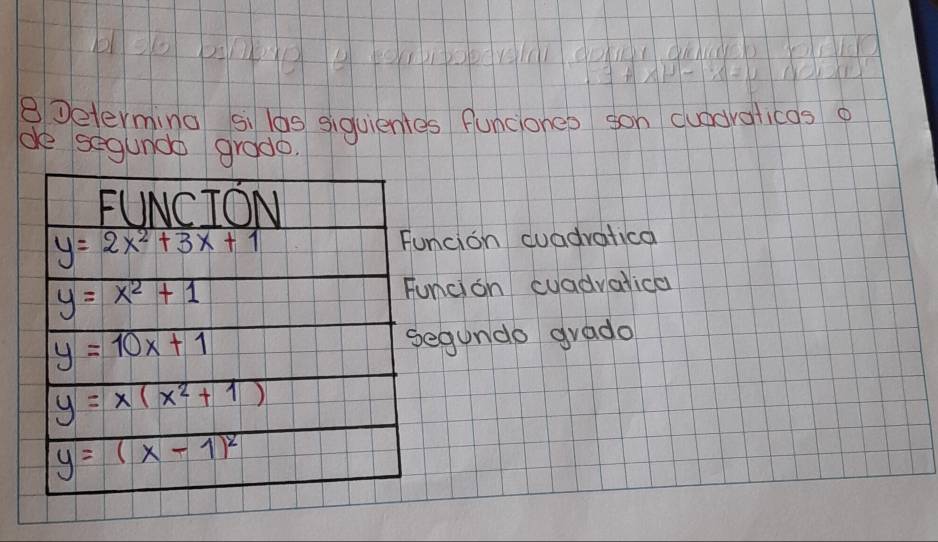 8 Determina si las siguientes funciones son cuadraticas o
de segundo grado.
FUNCIÓN
y = 2x² + 3x + 1 Función cuadratica
y = x² + 1 Función cuadratica
y = 10x + 1 segundo grado
y = x(x² + 1)
y = (x - 1)²